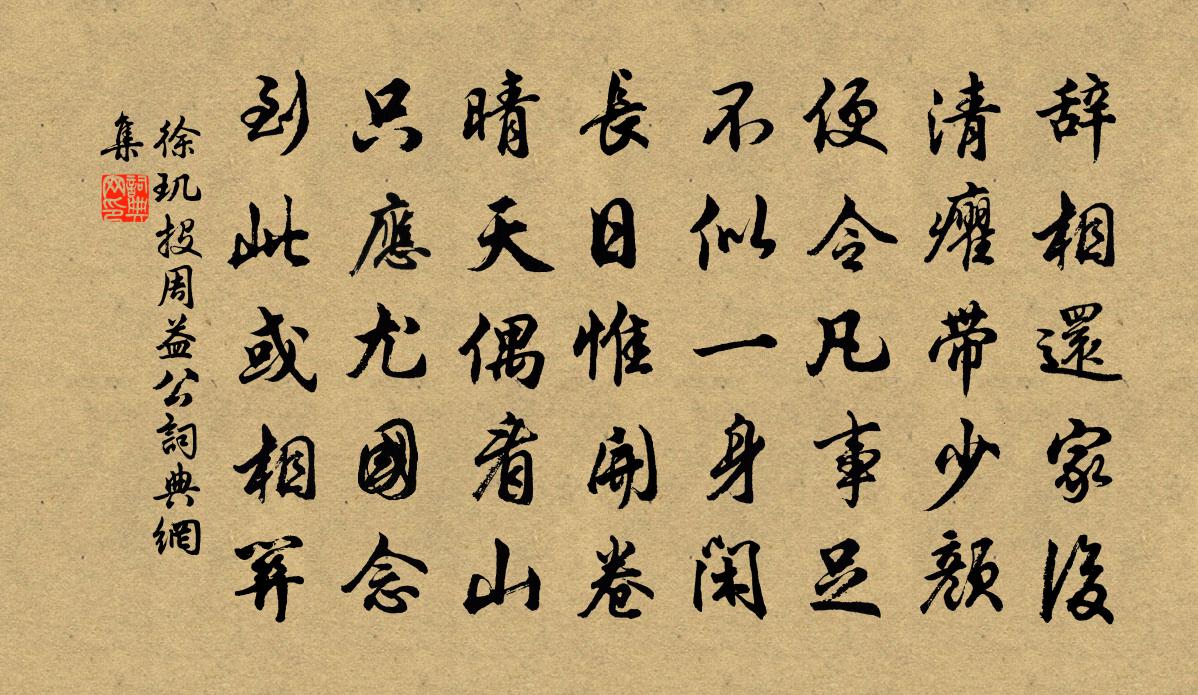 辞相還家後
清癯帶少顏
便令凡事足
不似一身閑
長日惟開卷
晴天偶看山
只應尤國念
到此或相關
徐玑投周益公詞典網
集
詞典網印